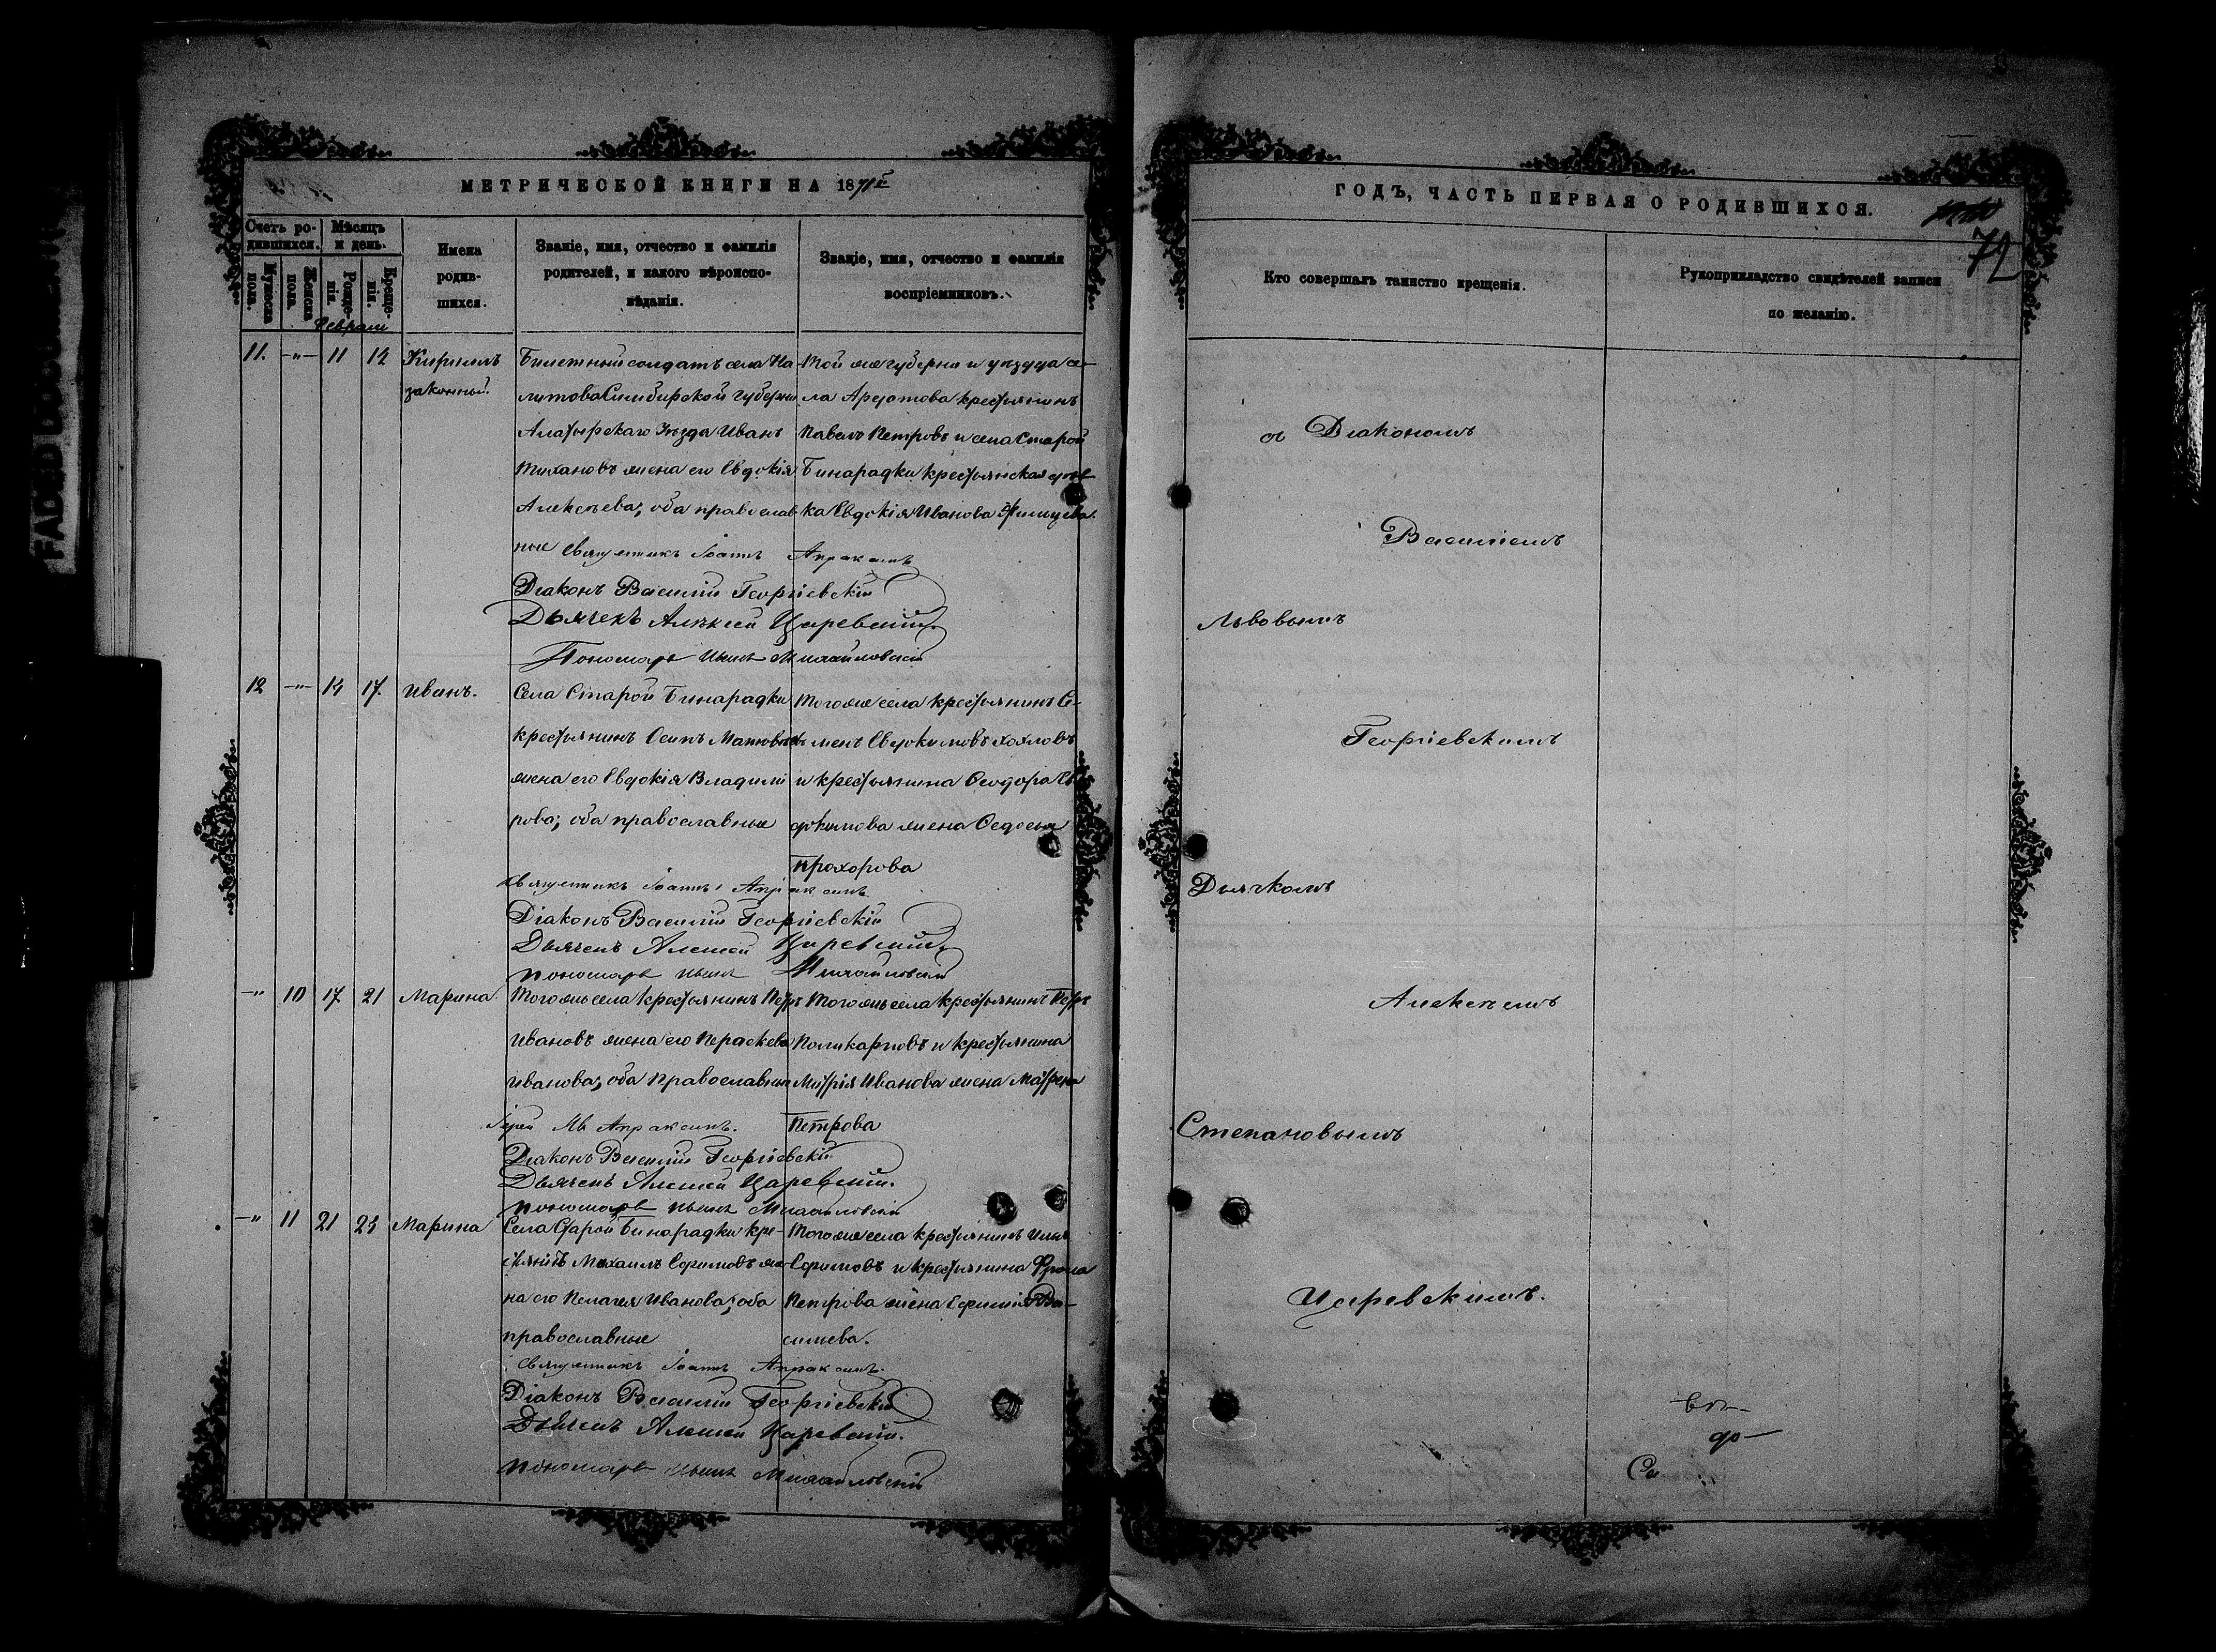 МЕТРИЧЕСКОЙ КНИГИ НА 1871й
Счетъ ро-
дившихся.
Мѣсяцъ
и день.
Мужеска
пола.
Женска
пола.
Рожде-
нія.
Креще-
нія.
Имена
родив-
шихся.
Званіе, имя, отчество и фамилія
родителей, и какого вѣроиспо-
вѣданія.
Званіе, имя, отчество и фамилія
воспріемниковъ.
Февраль
11. -"- 11 14 Кириллъ
законный.
Билетный солдатъ села
Симбирской губерніи
Алатырскаго Уѣзда Иванъ
жена его Евдокія
Алексѣева; оба православ
ные
Той же губерніи и уѣзда се-
ла Ардатова крестьянинъ
Павелъ Петровъ и села Старой
Бинарадки крестьянская дѣв
ка Евдокія Иванова
Священникъ Іоаннъ Апраксинъ
Діаконъ Василій Георгіевскій
Дьячекъ Алексѣй Царевскій.
Пономарь Михайловскій
12 -"- 14 17. Иванъ.
Села Старой Бинарадки
крестьянинъ Осипъ
жена его Евдокія Владими
рова; оба православные
Того же села крестьянинъ Се-
менъ Евдокимовъ Хохловъ
и крестьянина Ѳеодора Ев
докимова жена Ѳедосья
Прохорова
Священникъ Іоаннъ Апраксинъ
Діаконъ Василій Георгіевскій
Дьячекъ Алексѣй Царевскій.
Пономарь Михайловскій
-"- 10 17 21 Марина.
Того же села крестьянинъ Петръ
Ивановъ жена его Параскева
Иванова; оба православные
Того же села крестьянинъ Петръ
Поликарповъ и крестьянина
Дмитрія Иванова жена Матрена
Петрова
Іерей Апраксинъ.
Діаконъ Василій Георгіевскій
Дьячекъ Алексѣй Царевскій.
Пономарь Михайловскій
-"- 11 21 Марина
Села Старой Бинарадки кре-
стьянинъ Михаилъ Ефимовъ же-
на его Пелагея Иванова; оба
православные
Того же села крестьянинъ Илья
Ефимовъ и крестьянина Фрола
Петрова жена Ефимія Ва-
сильева.
Священникъ Іоаннъ Апраксинъ.
Діаконъ Василій Георгіевскій
Дьячекъ Алексѣй Царевскій.
Пономарь Михайловскій
ГОДЪ, ЧАСТЬ ПЕРВАЯ О РОДИВШИХСЯ.
72
Кто совершалъ таинство крещенія.
Рукоприкладство свидѣтелей записи
по желанію.
съ Діакономъ
Василіемъ
Львовымъ
Георгіевскимъ
Дьячкомъ
Алексѣемъ
Степановымъ
Царевскимъ.